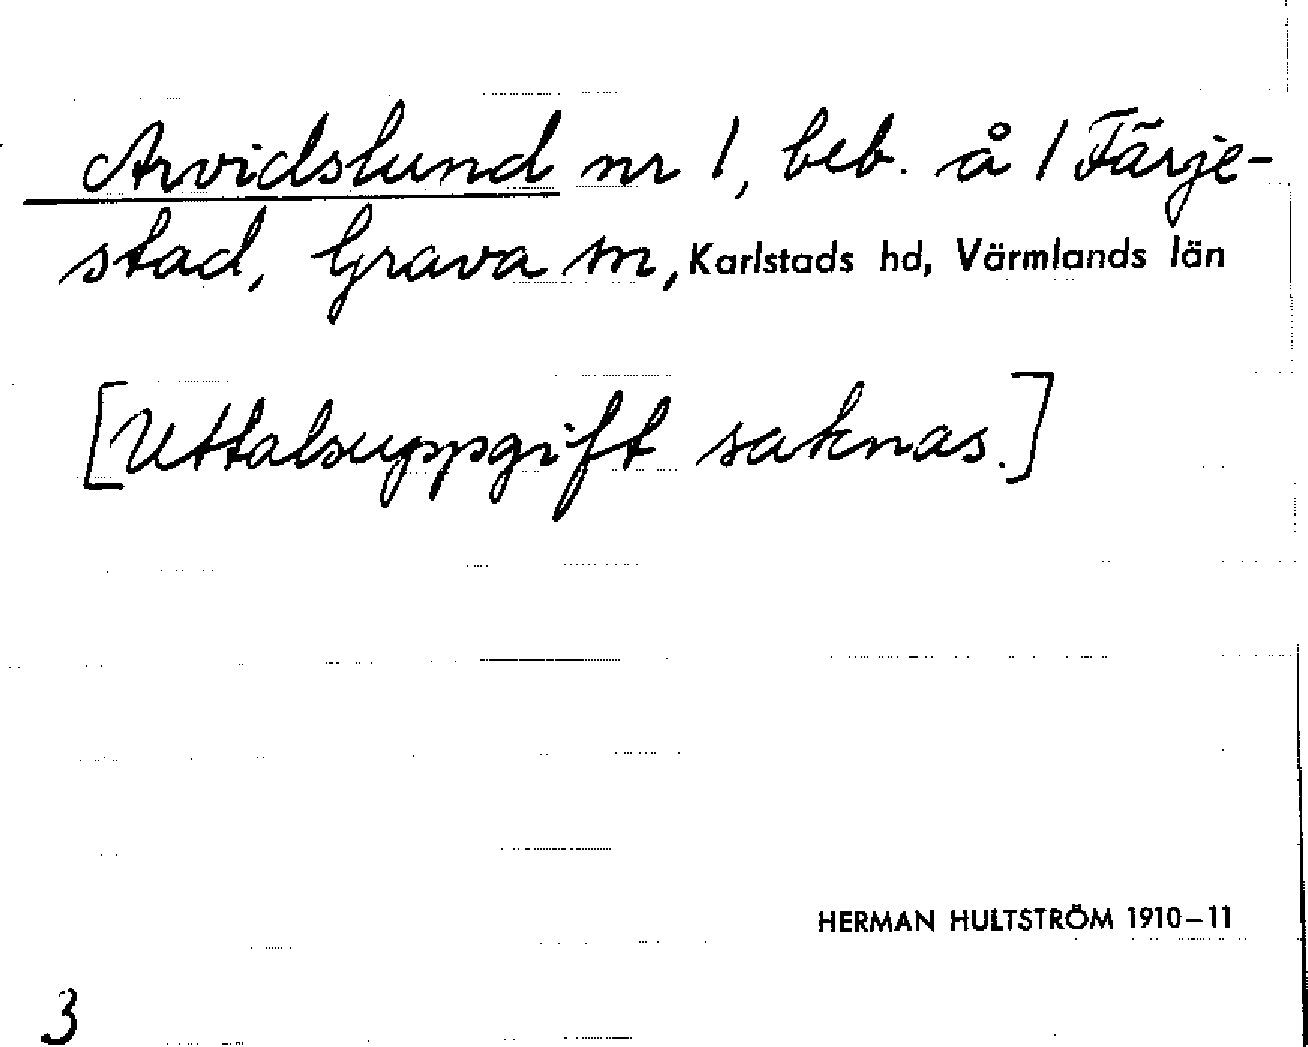 Arvidslund nr 1, beb. å 1 Färje-
stad, Grava sn, Karlstads hd, Värmlands län
[Uttalsuppgift saknas.]
HERMAN HULTSTRÖM 1910–11
3